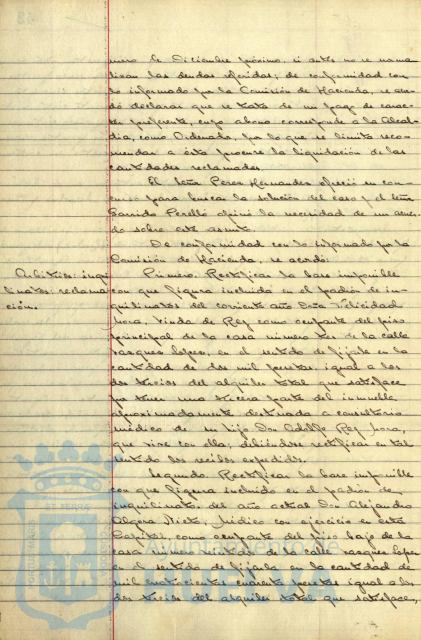 mero de Diciembre próximo, si antes no se norma-
lizan las deudas referidas; de conformidad con
lo informado por la Comisión de Hacienda, se acor-
dó declarar que se trata de un pago de carác-
ter preferente, cuyo abono corresponde a la Alcal-
día, como Ordenador, por lo que se limita reco-
mendar a ésta procure la liquidación de las
cantidades reclamadas.
El señor Perez Hernandez ofreció su con-
curso para buscar la solución del caso y el señor
Garrido Perelló opinó la necesidad de un acuer-
do sobre este asunto.
De conformidad con lo informado por la
Comisión de Hacienda, se acordó:
Arbitrios: inqui-
linatos: reclama-
ción.
Primero. Rectificar la base imponible
con que figura incluida en el padrón de in-
quilinatos del corriente año Doña Felicidad
Mora, viuda de Rey como ocupante del piso
principal de la casa número tres de la calle
Vazquez Lopez, en el sentido de fijarle en la
cantidad de dos mil pesetas, igual a los
dos tercios del alquiler total que satisface
por tener una tercera parte del inmueble
aproximadamente, destinada a consultorio
médico de un hijo Don Adolfo Rey Mora,
que vive con ella; debiéndose rectificar en tal
sentido los recibos expedidos.
Segundo. Rectificar la base imponible
con que figura incluido en el padrón de
inquilinatos, del año actual Don Alejandro
Nieto, Médico con ejercicio en esta
Capital, como ocupante del piso bajo de la
casa número de la calle Vazquez Lopez
en el sentido de fijarla en la cantidad de
mil cuatrocientas cuarenta pesetas igual a los
dos tercios del alquiler total que satisface,